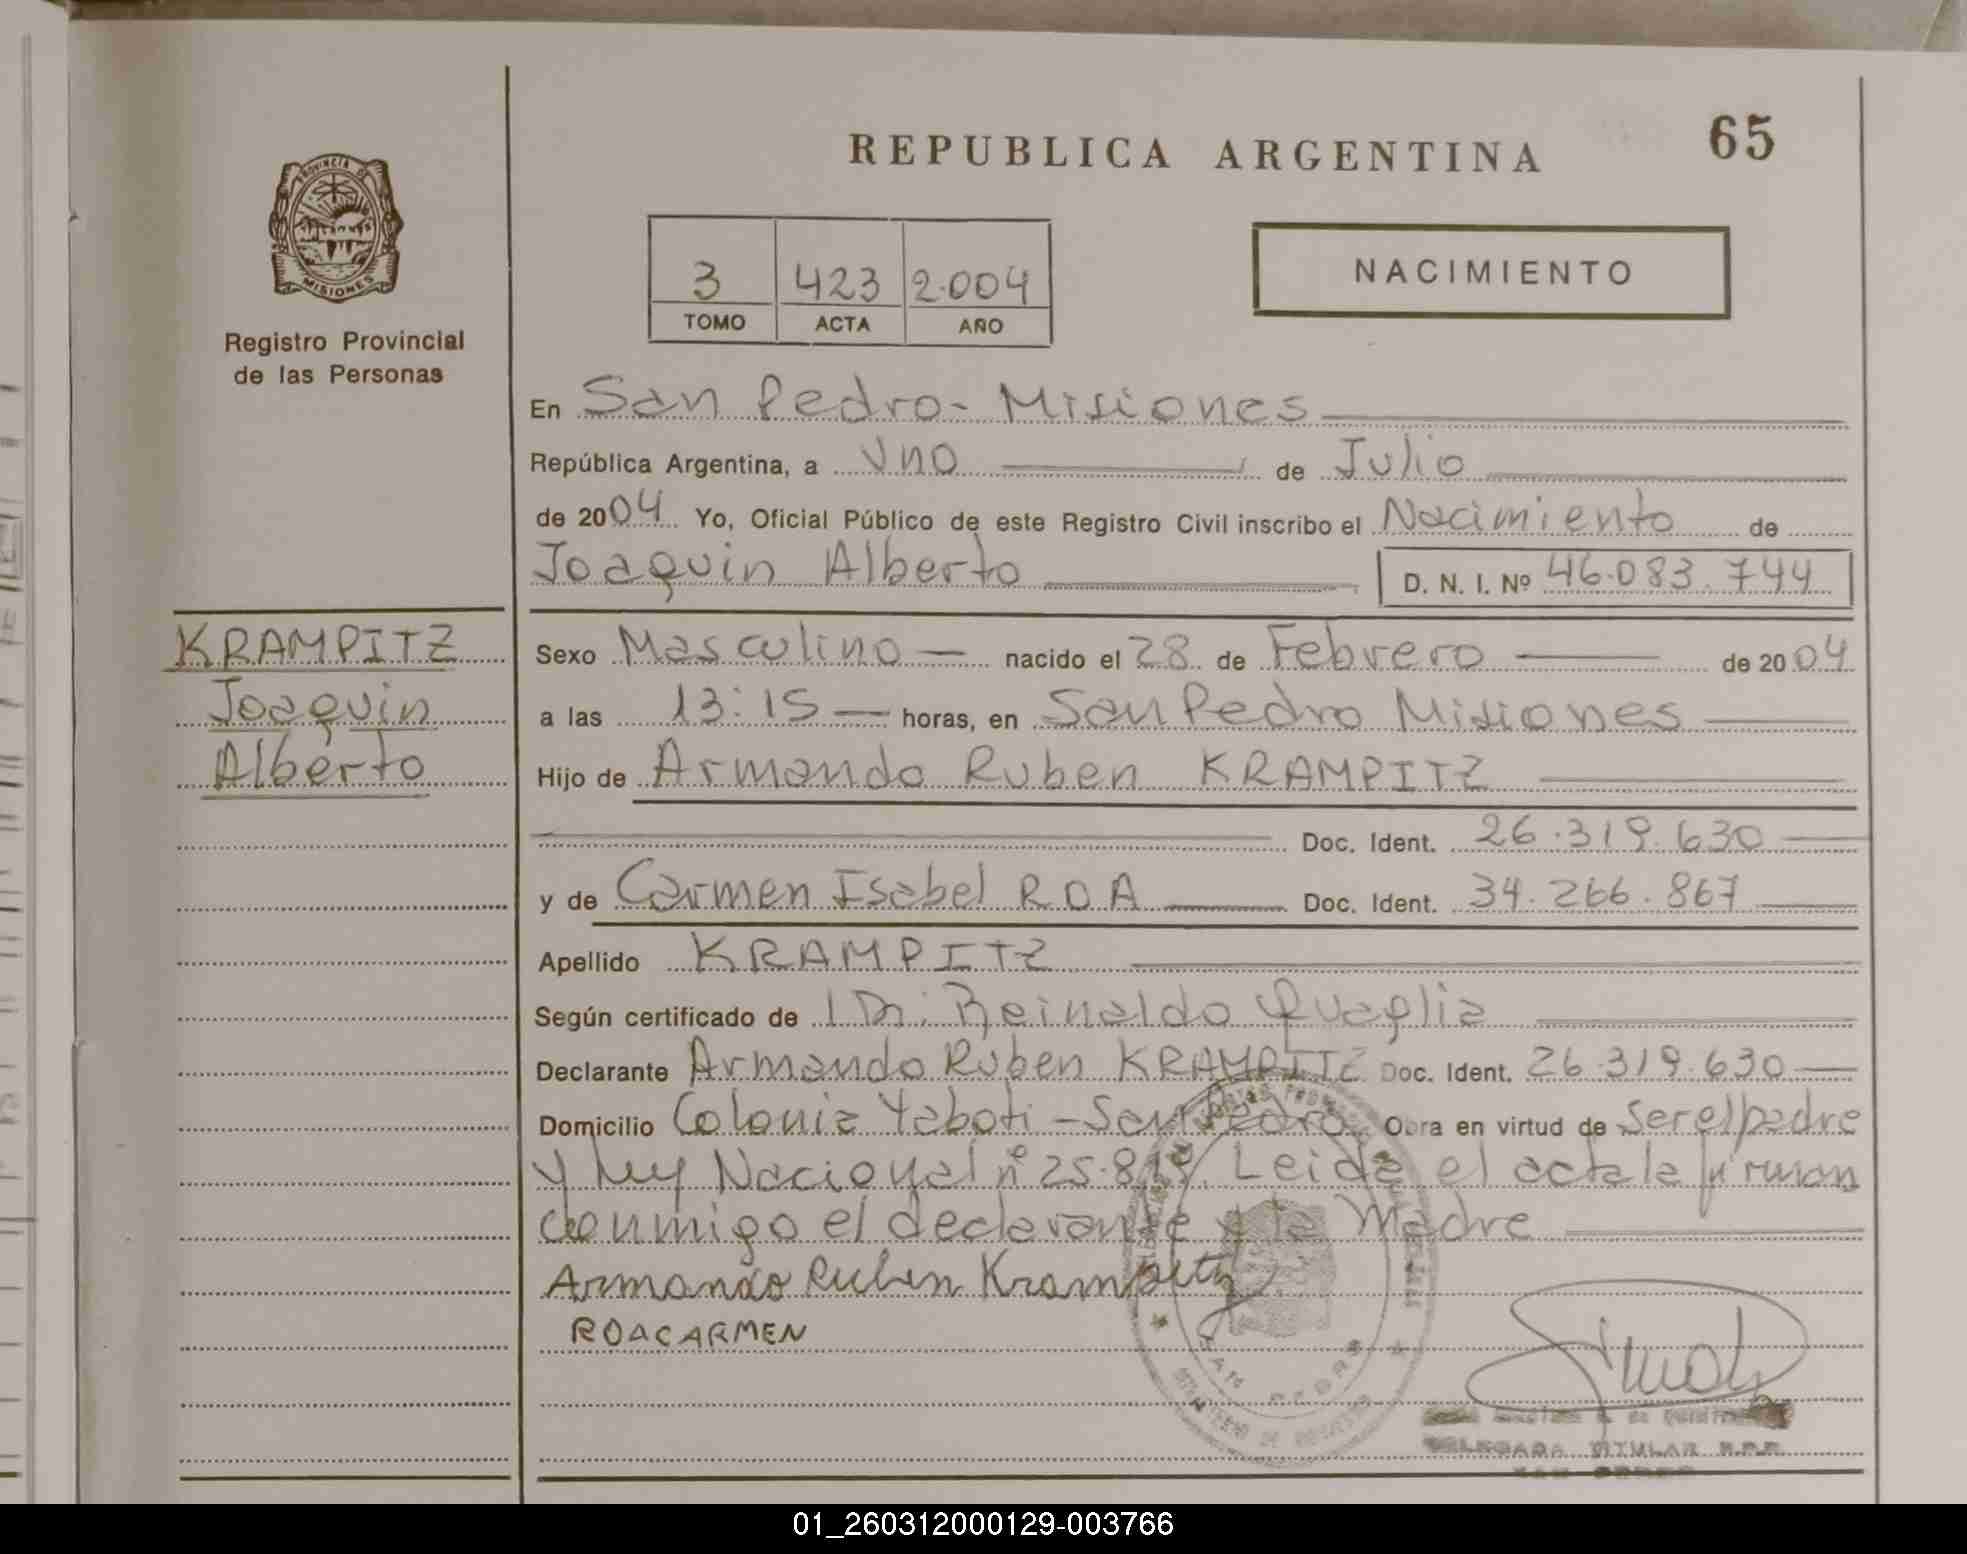 REPUBLICA ARGENTINA
65
PROVINCIA DE
MISIONES
Registro Provincial
de las Personas
3 423 2.004
TOMO ACTA AÑO
NACIMIENTO
En San Pedro - Misiones
República Argentina, a Uno de Julio
de 2004 Yo, Oficial Público de este Registro Civil inscribo el Nacimiento de
Joaquin Alberto D. N. I. Nº 46.083.744
KRAMPITZ
Joaquin
Alberto
Sexo Masculino nacido el 28 de Febrero de 2004
a las 13:15 horas, en San Pedro Misiones
Hijo de Armando Ruben KRAMPITZ
Doc. Ident. 26.319.630
y de Carmen Isabel ROA Doc. Ident. 34.266.867
Apellido KRAMPITZ
Según certificado de Dr. Reinaldo Quaglia
Declarante Armando Ruben KRAMPITZ Doc. Ident. 26.319.630
Domicilio Colonia Yaboti - San Pedro Obra en virtud de Ser el padre
y Ley Nacional nº Leida el acta la firman
conmigo el declarante y la Madre
Armando Ruben Krampitz
ROA CARMEN
SAN PEDRO
DELEGADA TITULAR R.P.P.
SAN PEDRO
01_260312000129-003766